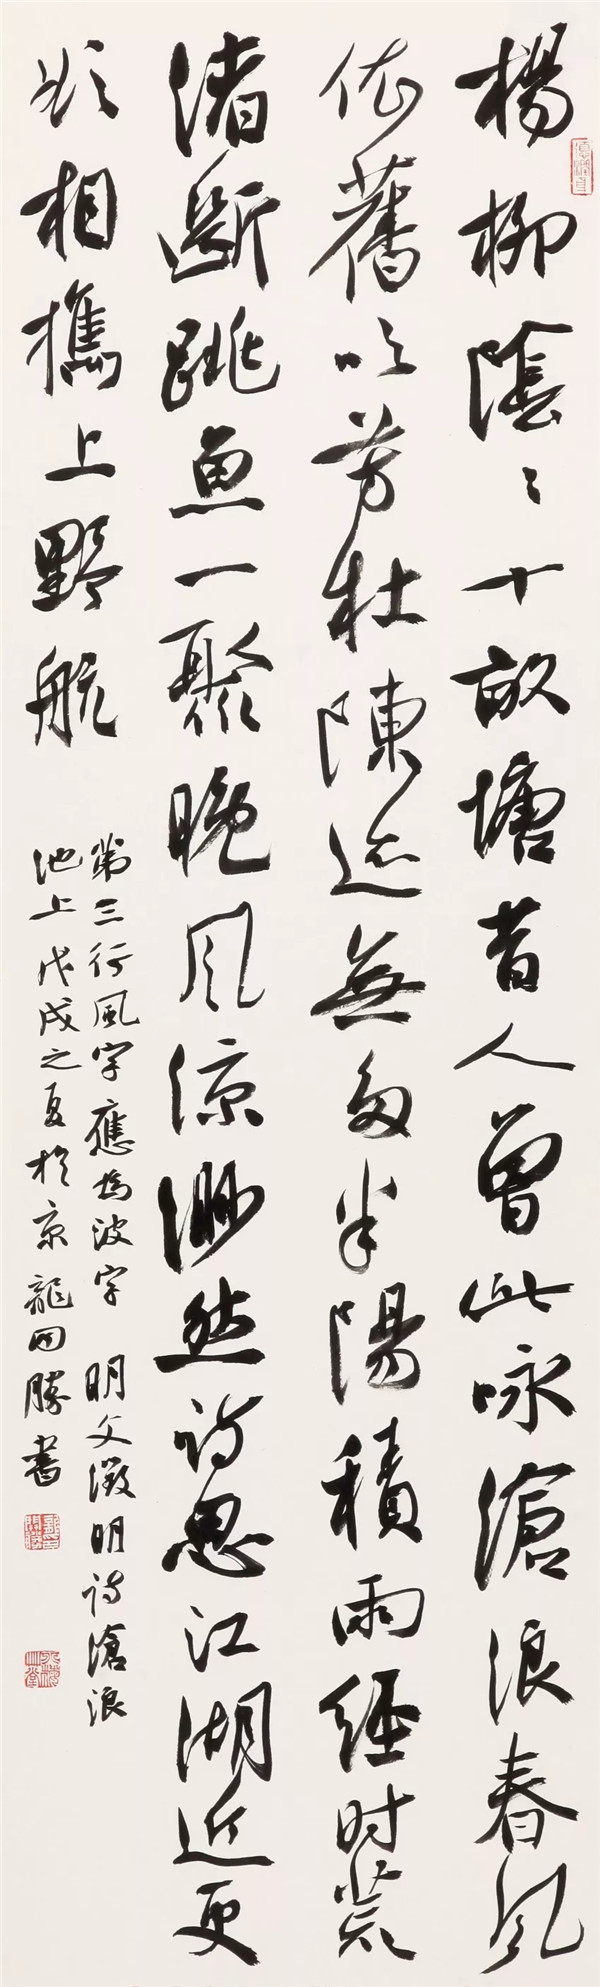 楊柳陰〻十畝塘昔人曾此咏滄浪春風
依舊吹芳杜陳迹無多半陽積雨經時荒
渚斷跳魚一聚晚風涼渺然詩思江湖近更
欲相攜上野航
第三行風字應為波字 明文徵明詩滄浪
池上戊戌之夏於京龍開勝書